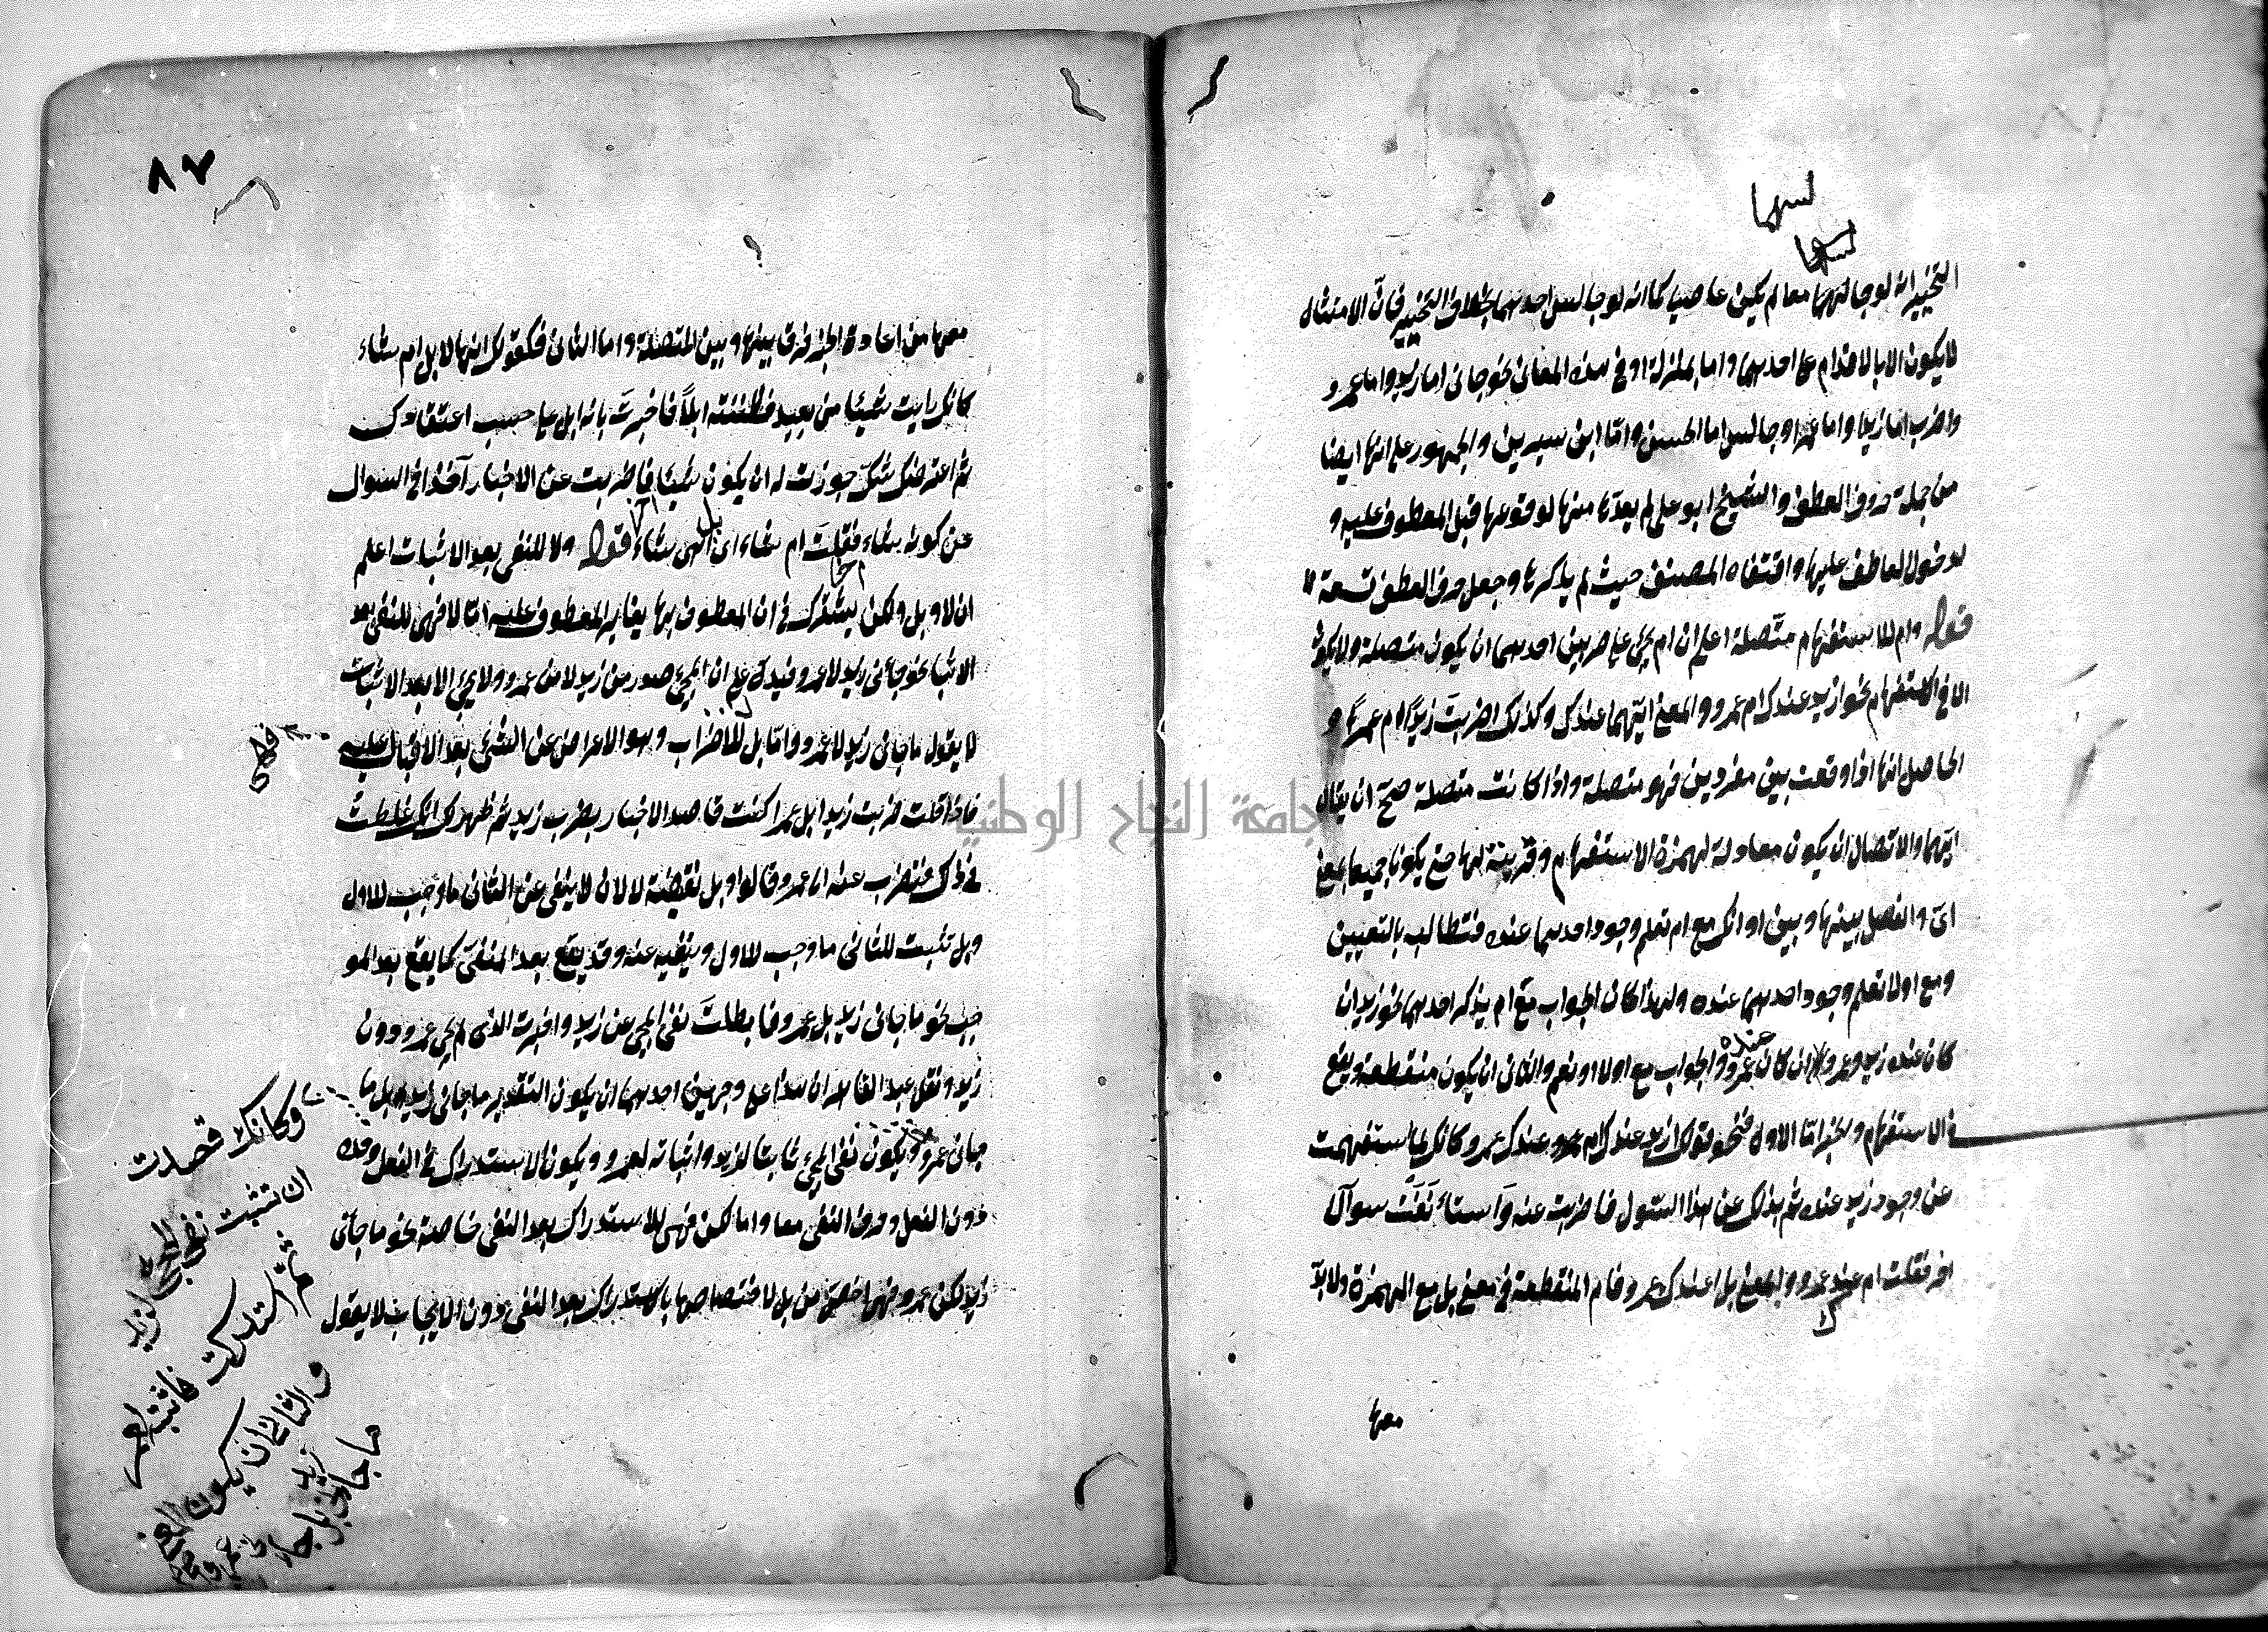 التخيير انه لو جالسهما معا لم يكن عاصيا كما انه لو جالس احدهما بخلاف التخيير فان الامتثال
لا يكون الا بالاقدام على احدهما واما بمنزلة او في هذه المعاني نحو جاني اما زيد واما عمرو
واضرب اما زيدا واما عمرا وجالس اما الحسن واما ابن سيرين والجمهور على انها ايضا
من جملة حروف العطف والشيخ ابو علي لم يعدها منها لوقوعها قبل المعطوف عليه و
لدخول العاطف عليها واقتفاه المصنف حيث لم يذكرها وجعل حروف العطف تسعة
قوله وام للاستفهام متصلة اعلم ان ام يجئ على ضربين احدهما ان يكون متصلة ولا يكون
الا في الاستفهام نحو ازيد عندك ام عمرو والمعنى ايهما عندك وكذلك اضربت زيدا ام عمرا و
الحاصل انها اذا وقعت بين مفردين فهو متصلة واذا كانت متصلة صح ان يقال
ايهما والاتصال ان يكون معادلة لهمزة الاستفهام وقرينة لها حتى يكونا جميعا بمعنى
اي والفصل بينها وبين او انك مع ام تعلم وجود احدهما عنده فتطالب بالتعيين
ومع او لا تعلم وجود احدهما عنده ولهذا كان الجواب مع ام بذكر احدهما نحو زيد ان
كان عنده زيد وعمرو ان كان عنده عمرو والجواب مع او لا او نعم والثاني ان يكون منقطعة ويقع
في الاستفهام والخبر اما الاول فنحو قولك ازيد عندك ام عمرو عندك عمرو كانك لما استفهمت
عن وجود زيد عنده ثم بدا لك عن هذا السئول فاضربت عنه واستأنفت سوالا
اخر فقلت ام عندك عمرو والمعنى بل اعندك عمرو فام المنقطعة في معنى بل مع الهمزة ولا بد
معها
٨٧
معها من اعادة الخبر فرقا بينها وبين المتصلة واما الثاني فكقولك انها لابل ام شاء
كانك رايت شيئا من بعيد فظننته ابلا فاخبرت بانه ابل على حسب اعتقادك
ثم اعترضك شك جوزت له ان يكون شيئا فاضربت عن الاخبار آخذا في السوال
عن كونه شاء فقلت ام شاء اي بل اهي شاء قوله ولا للنفي بعد الاثبات اعلم
ان لا وبل ولكن يشترك في ان المعطوف بها يغاير المعطوف عليه اما لا فهي للنفي بعد
الاثبات نحو جاني زيد لا عمرو فيدل على ان المجئ صدر من زيد لا من عمرو ولا يجئ الا بعد الاثبات
لا يقول ما جاني زيد لا عمرو واما بل للاضراب وهو الاعراض عن الشئ بعد الاقبال عليه
فاذا قلت ضربت زيدا بل عمرا كنت قاصدا لاخبار بضرب زيد ثم ظهر لك انك غلطت
في ذلك فتضرب عنه الى عمرو قالوا وبل نقيضة لا لان لا ينفي عن الثاني ما وجب للاول
وبل تثبت للثاني ما وجب للاول وينفيه عنه وقد يقع بعد المنفي كما يقع بعد المو
جب نحو ما جاني زيد بل عمرو فابطلت نفي المجئ عن زيد واخبرت الذي لم يجئ عمرو دون
زيد ونقل عبد القاهر ان هذا على وجهين احدهما ان يكون التقدير ما جاني زيد بل ما
جاني عمرو ويكون نفي المجئ ثابتا لزيد واثباته لعمرو ويكون الاستدراك في الفعل وحده
دون الفعل وحرف النفي معا واما لكن فهي للاستدراك بعد النفي خاصة نحو ما جاني
زيد لكن عمرو فهي اخص من بل لاختصاصها بالاستدراك بعد النفي دون الايجاب لا يقول
وكانك قصدت
ان تثبت نفي المجئ لزيد
ثم استدركت فاثبته لعمرو
والثاني ان يكون
ما جاني زيد
بل جاني عمرو
جامعة النجاح الوطنية